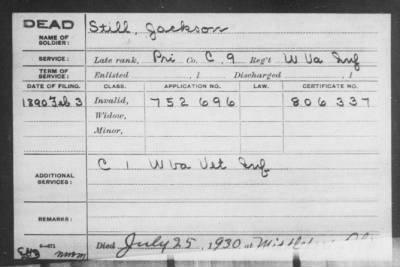 DEAD
NAME OF SOLDIER: Still, Jackson
SERVICE: Late rank, Pri Co. C, 9 Reg't W Va Inf
TERM OF SERVICE: Enlisted , 1 Discharged , 1
DATE OF FILING. CLASS. APPLICATION NO. LAW. CERTIFICATE NO.
1890 Feb 3 Invalid, 752696 806337
Widow,
Minor,
ADDITIONAL SERVICES: C 1 W Va Vet Inf
REMARKS:
6—671
Died July 25, 1930 at